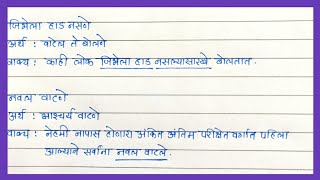 जिभेला हाड नसणे
अर्थ : वाटेल ते बोलणे
वाक्य : काही लोक जिभेला हाड नसल्यासारखे बोलतात.
नवल वाटणे
अर्थ : आश्चर्य वाटणे
वाक्य : नेहमी नापास होणारा अंकित अंतिम परीक्षेत वर्गात पहिला
आल्याने सर्वांना नवल वाटले.